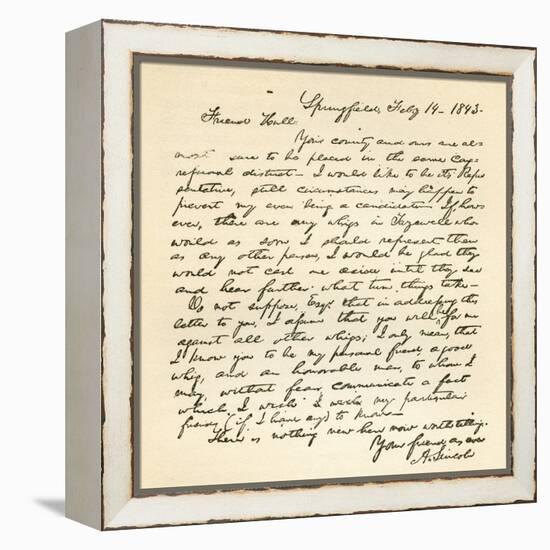 Springfield, Feby 14- 1843-
Friend Hull
Your county and ours are al=
most sure to be placed in the same Con=
gressional district- I would like to be its Repre
sentative, still circumstances may happen to
prevent my even being a candidate- If, how=
ever, there are any whigs in Tazewell who
would as soon I should represent them
as any other person, I would be glad they
would not cast me aside until they see
and hear farther what turn things take-
Do not suppose, Esqr. that in addressing this
letter to you, I assume that you will be for me
against all other whigs; I only mean, that
I know you to be my personal friend, a good
whig, and an honorable man, to whom I
may, without fear, communicate a fact
which I wish I wish my particular
friends (if I have any) to know-
There is nothing new here now worth telling.
Your friend, as ever
A. Lincoln